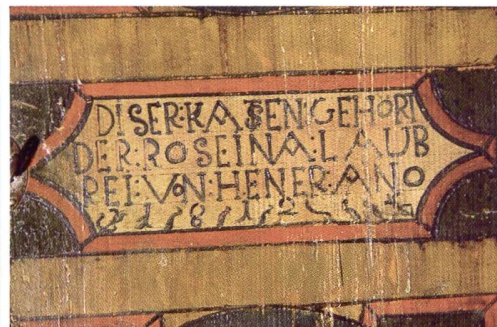 DISER:KASTEN:GEHÖRT
DER:ROSEINA:LAUB
REI:VON:HENER:ANO
1812